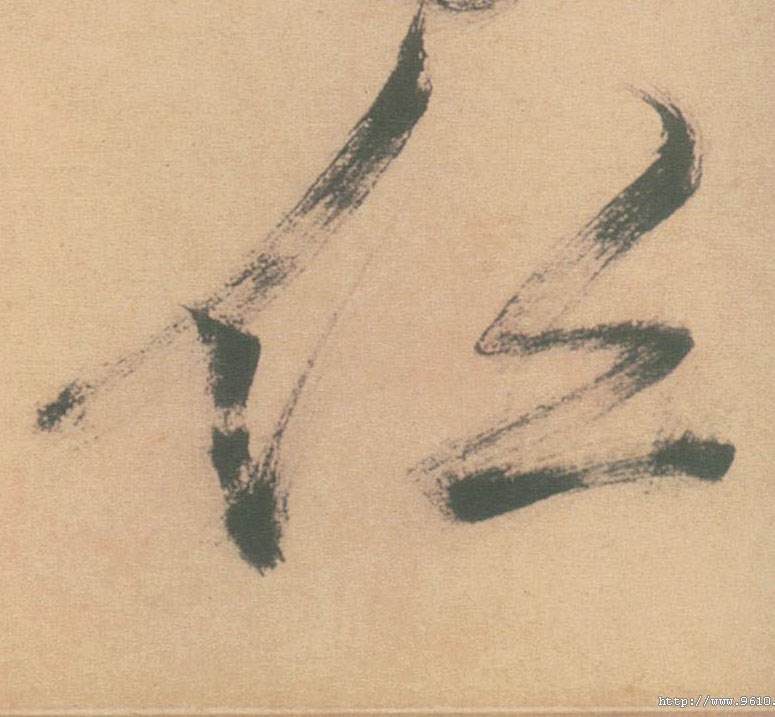 任
http://www.9610.